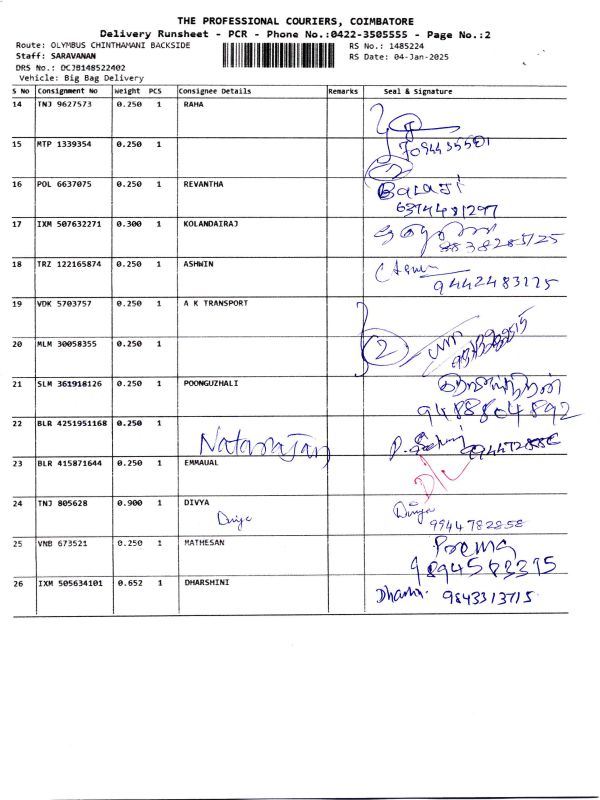 THE PROFESSIONAL COURIERS, COIMBATORE
Delivery Runsheet - PCR - Phone No.:0422-3505555 - Page No.:2
Route: OLYMBUS CHINTHAMANI BACKSIDE RS No.: 1485224
Staff: SARAVANAN RS Date: 04-Jan-2025
DRS No.: DCJB148522402
Vehicle: Big Bag Delivery
S No Consignment No Weight PCS Consignee Details Remarks Seal & Signature
14 TNJ 9627573 0.250 1 RAHA
15 MTP 1339354 0.250 1
2
16 POL 6637075 0.250 1 REVANTHA Balaji
6374481297
17 IXM 507632271 0.300 1 KOLANDAIRAJ
18 TRZ 122165874 0.250 1 ASHWIN
9442483125
19 VDK 5703757 0.250 1 A K TRANSPORT
20 MLM 30058355 0.250 1 2
21 SLM 361918126 0.250 1 POONGUZHALI
9488804892
22 BLR 4251951168 0.250 1 Natarajan
23 BLR 415871644 0.250 1 EMMAUAL
24 TNJ 805628 0.900 1 DIVYA Divya
Divya 9944782858
25 VNB 673521 0.250 1 MATHESAN Prema
26 IXM 505634101 0.652 1 DHARSHINI 9843313715